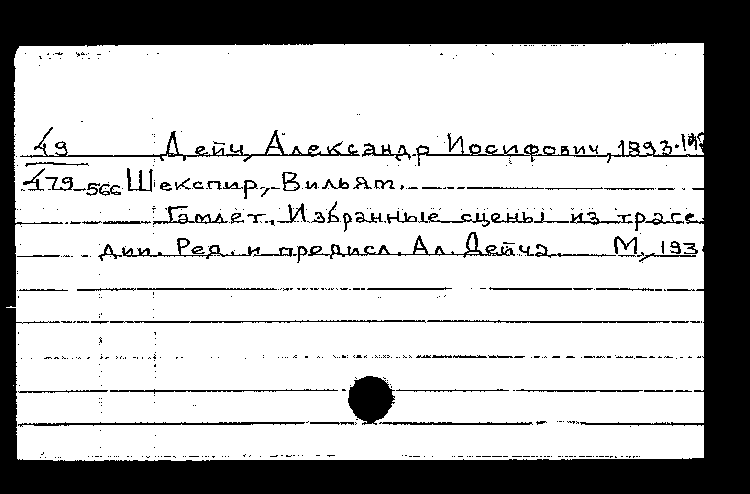 49 Дейч, Александр Иосифович, 1893-
479 566 Шекспир, Вильям.
Гамлет. Избранные сцены из траге-
дии. Ред. и предисл. Ал. Дейча. М., 193